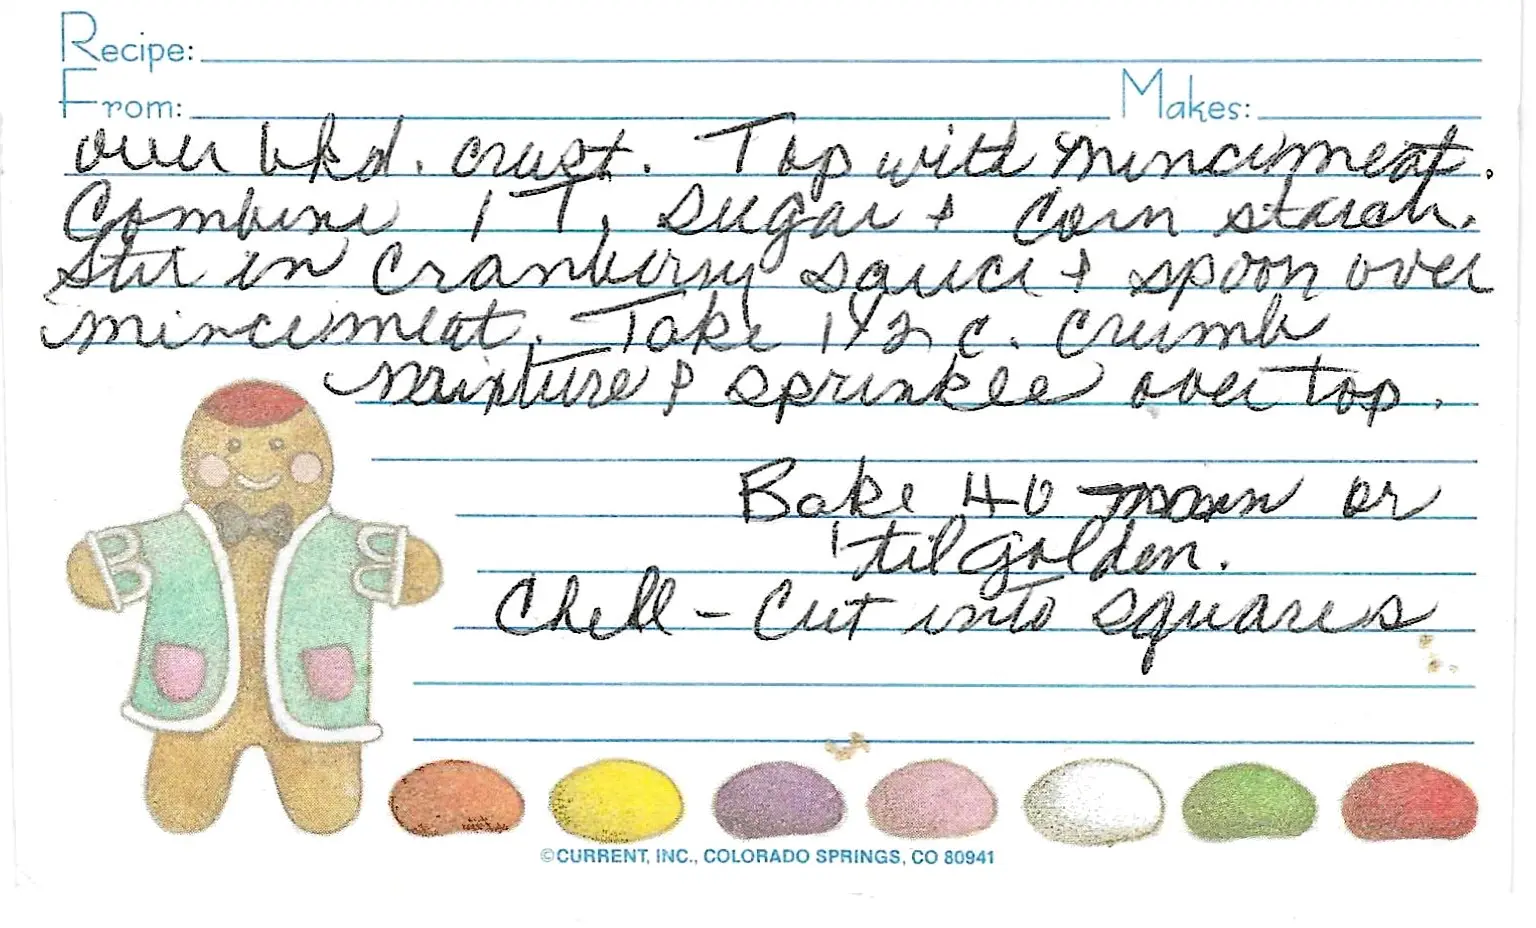 Recipe:
From: Makes:
over bkd. crust. Top with mincemeat.
Combine 1 T. sugar & corn starch.
Stir in cranberry sauce & spoon over
mincemeat. Take 1 1/2 c. crumb
mixture & sprinkle over top.
Bake 40 min or
'til golden.
Chill - Cut into squares
©CURRENT, INC., COLORADO SPRINGS, CO 80941